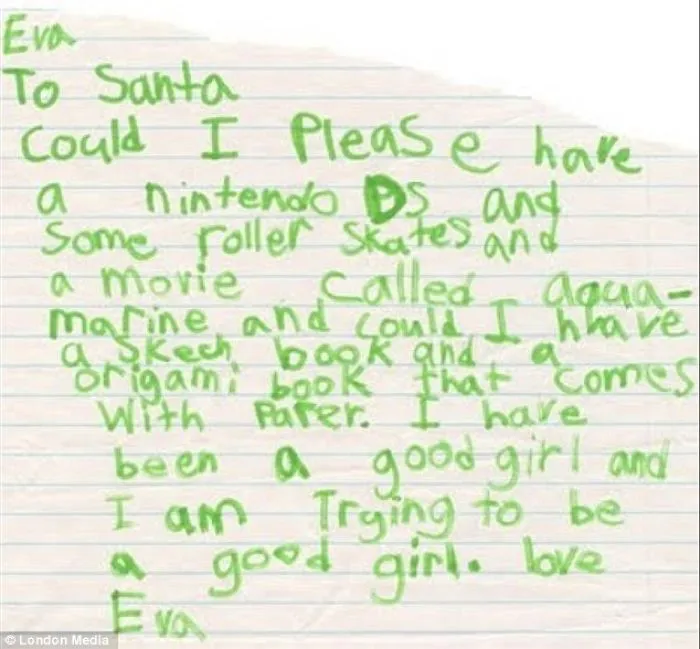 Eva
To Santa
Could I Please have
a nintendo DS and
some roller skates and
a movie called aqua-
marine and could I have
a skech book and a
origami book that comes
with Paper. I have
been a good girl and
I am Trying to be
a good girl. love
Eva
© London Media